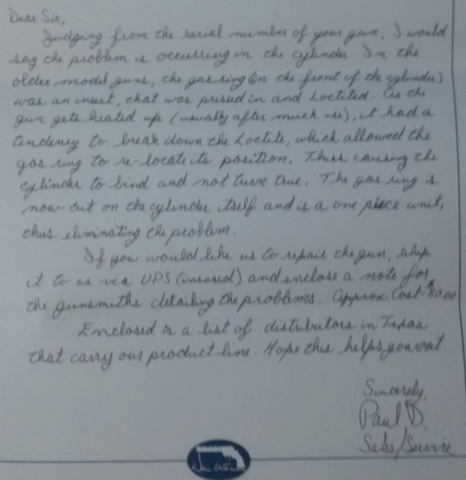 Dear Sir,
Judging from the serial number of your gun, I would
say the problem is occurring in the cylinder. In the
older model guns, the gas ring (on the front of the cylinder)
was an insert, that was pressed in and Loctited. As the
gun gets heated up (usually after much use), it had a
tendency to break down the Loctite, which allowed the
gas ring to re-locate its position. Thus causing the
cylinder to bind and not turn true. The gas ring is
now cut on the cylinder itself and is a one piece unit,
thus eliminating the problem.
If you would like us to repair the gun, ship
it to us via UPS (insured) and enclose a note for
the gunsmiths detailing the problems. Approx Cost
Enclosed is a list of distributors in Texas
that carry our product line. Hope this helps you out.
Sincerely,
Paul D.
Sales/Service